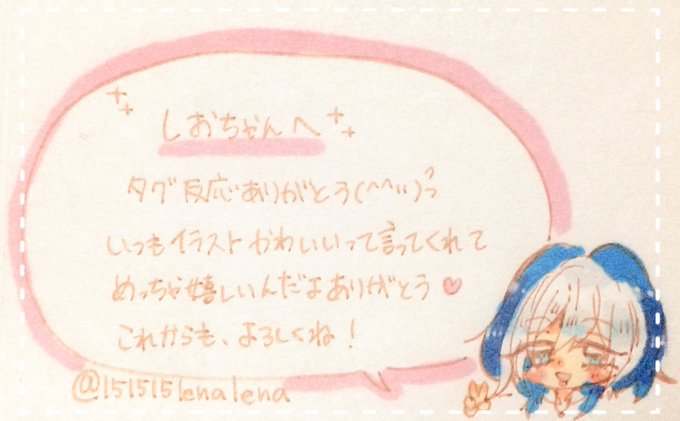 しおちゃんへ
タグ反応ありがとう(^^ ;;)っ
いつもイラストかわいいって言ってくれて
めっちゃ嬉しいんだよありがとう♡
これからも、よろしくね!
@151515lenalena